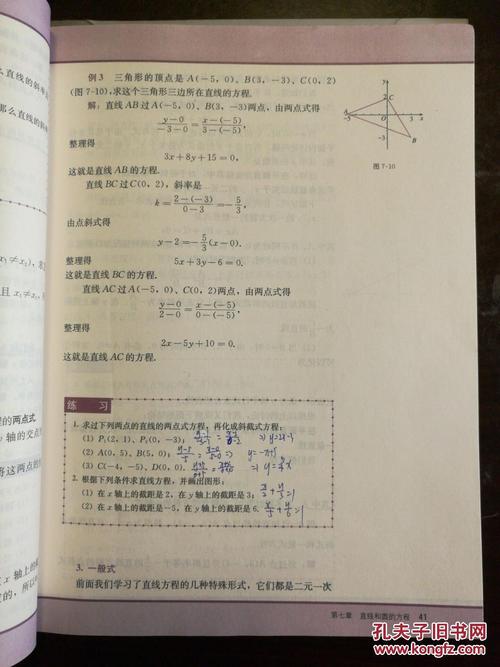 例 3 三角形的顶点是 A(-5, 0)、B(3, -3)、C(0, 2)
(图 7-10), 求这个三角形三边所在直线的方程.
解: 直线 AB 过 A(-5, 0)、B(3, -3)两点, 由两点式得
\frac{y-0}{-3-0}=\frac{x-(-5)}{3-(-5)},
整理得
3x+8y+15=0,
这就是直线 AB 的方程.
直线 BC 过 C(0, 2), 斜率是
k=\frac{2-(-3)}{0-3}=-\frac{5}{3},
由点斜式得
y-2=-\frac{5}{3}(x-0).
整理得 5x+3y-6=0.
这就是直线 BC 的方程.
直线 AC 过 A(-5, 0)、C(0, 2)两点, 由两点式得
\frac{y-0}{2-0}=\frac{x-(-5)}{0-(-5)},
整理得
2x-5y+10=0.
这就是直线 AC 的方程.
图 7-10
练 习
1. 求过下列两点的直线的两点式方程, 再化成斜截式方程:
(1) P₁(2, 1)、P₂(0, -3);
(2) A(0, 5)、B(5, 0);
(3) C(-4, -5)、D(0, 0).
2. 根据下列条件求直线方程, 并画出图形:
(1) 在 x 轴上的截距是 2, 在 y 轴上的截距是 3;
(2) 在 x 轴上的截距是-5, 在 y 轴上的截距是 6.
3. 一般式
前面我们学习了直线方程的几种特殊形式, 它们都是二元一次
第七章 直线和圆的方程 41
孔夫子旧书网